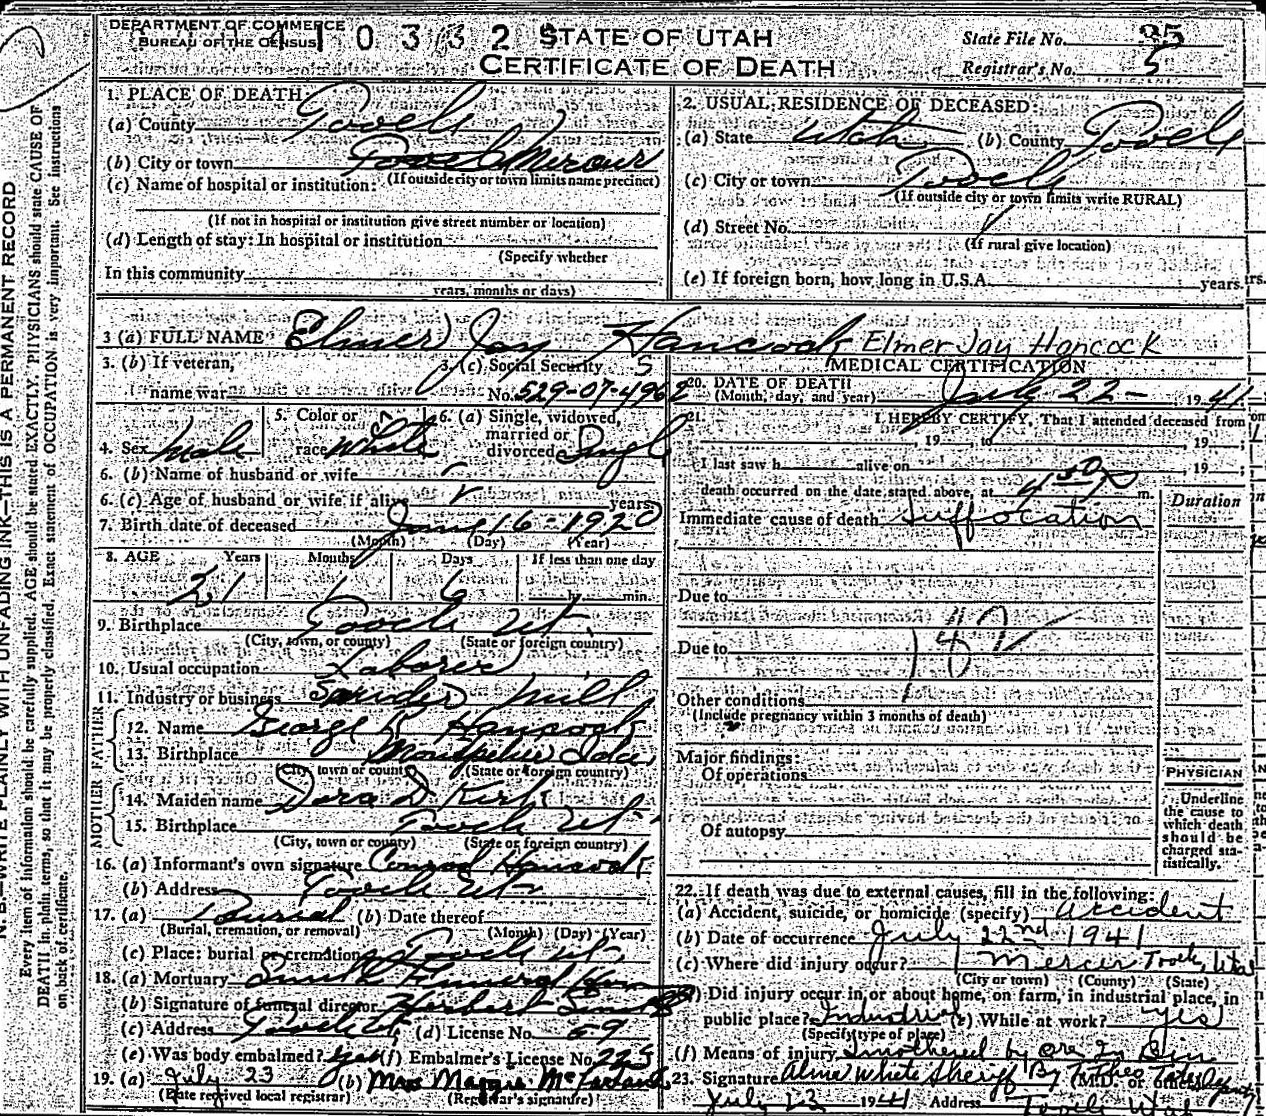 DEPARTMENT OF COMMERCE
BUREAU OF THE CENSUS
STATE OF UTAH
CERTIFICATE OF DEATH
State File No. 95
Registrar's No. 5
1. PLACE OF DEATH:
(a) County Tooele
(b) City or town Tooele Mercur
(If outside city or town limits name precinct)
(c) Name of hospital or institution:
(If not in hospital or institution give street number or location)
(d) Length of stay: In hospital or institution
(Specify whether
In this community
years, months or days)
2. USUAL RESIDENCE OF DECEASED:
(a) State Utah (b) County Tooele
(c) City or town Tooele
(If outside city or town limits write RURAL)
(d) Street No.
(If rural give location)
(e) If foreign born, how long in U.S.A. years.
3 (a) FULL NAME Elmer Jay Hancock Elmer Jay Hancock
3. (b) If veteran,
name war
3. (c) Social Security
No. 529-07-4962
4. Sex Male
5. Color or
race White
6. (a) Single, widowed,
married or
divorced Single
6. (b) Name of husband or wife
6. (c) Age of husband or wife if alive years
7. Birth date of deceased 16-1920
(Month) (Day) (Year)
8. AGE Years Months Days If less than one day
21 1 6 hr. min.
9. Birthplace Tooele Ut.
(City, town, or county) (State or foreign country)
10. Usual occupation Laborer
11. Industry or business Mill
FATHER
12. Name George Hancock
13. Birthplace Montpelier Ida.
(City, town or county) (State or foreign country)
MOTHER
14. Maiden name Dora D Kirk
15. Birthplace Tooele Ut
(City, town or county) (State or foreign country)
16. (a) Informant's own signature Conrad Hancock
(b) Address Tooele Ut
17. (a) Burial (b) Date thereof
(Burial, cremation, or removal) (Month) (Day) (Year)
(c) Place: burial or cremation Tooele Ut.
18. (a) Mortuary Smith Funeral Home
(b) Signature of funeral director Herbert Smith
(c) Address Tooele Ut (d) License No. 59
(e) Was body embalmed? Yes (f) Embalmer's License No. 225
19. (a) July 23 (b) Mrs Maggie McFarland
(Date received local registrar) (Registrar's signature)
MEDICAL CERTIFICATION
20. DATE OF DEATH
(Month, day, and year) July 22 - , 1941
21. I HEREBY CERTIFY, That I attended deceased from
, 19 , to , 19 ;
I last saw h alive on , 19 ;
death occurred on the date stated above, at 4 50 P m.
Duration
Immediate cause of death Suffocation
Due to
Due to
Other conditions
(Include pregnancy within 3 months of death)
Major findings:
Of operations
Of autopsy
PHYSICIAN
Underline
the cause to
which death
should be
charged sta-
tistically.
22. If death was due to external causes, fill in the following:
(a) Accident, suicide, or homicide (specify) Accident
(b) Date of occurrence July 22nd 1941
(c) Where did injury occur? Mercur Tooele, Utah
(City or town) (County) (State)
Did injury occur in or about home, on farm, in industrial place, in
public place? (e) While at work? yes
(Specify type of place)
(f) Means of injury Smothered by ore in Bin
23. Signature Alma White Sheriff By Deputy
(M.D. or other)
July 23 1941 Address Tooele Utah
N.B.—WRITE PLAINLY WITH UNFADING INK—THIS IS A PERMANENT RECORD
Every item of information should be carefully supplied. AGE should be stated EXACTLY. PHYSICIANS should state CAUSE OF
DEATH in plain terms, so that it may be properly classified. Exact statement of OCCUPATION is very important. See instructions
on back of certificate.